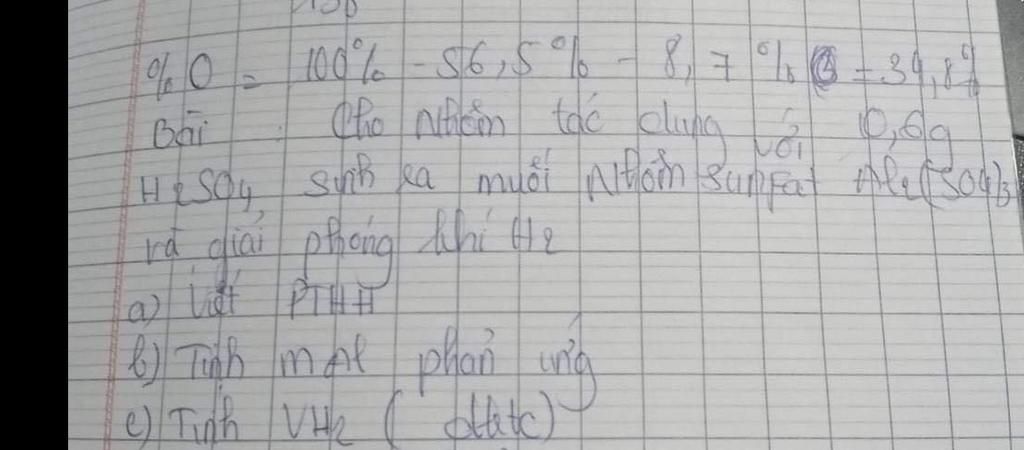 %O = 100% - 56,5% - 8,7% = 34,8%
Bài : Cho Nhôm tác dụng với 0,6g
H2SO4 sinh ra muối Nhôm sunfat Al2(SO4)3
và giải phóng khí H2
a) Viết PTHH
b) Tính mAl phản ứng
c) Tính VH2 (đktc)